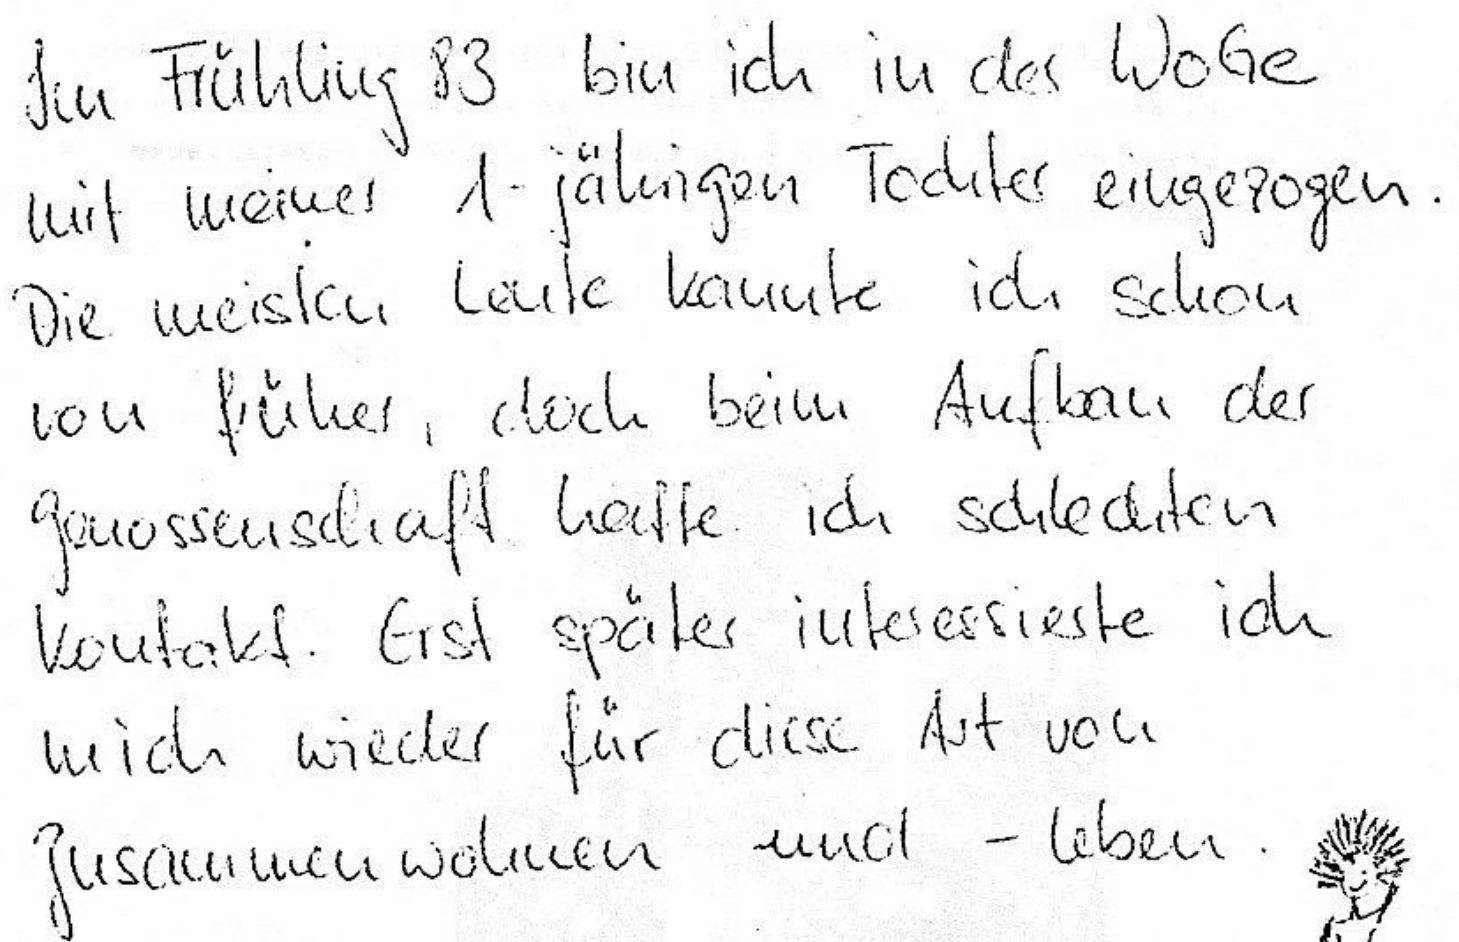 Im Frühling 83 bin ich in der WoGe
mit meiner 1-jährigen Tochter eingezogen.
Die meisten Leute kannte ich schon
von früher, doch beim Aufbau der
Genossenschaft hatte ich schlechten
Kontakt. Erst später interessierte ich
mich wieder für diese Art von
Zusammenwohnen und -leben.